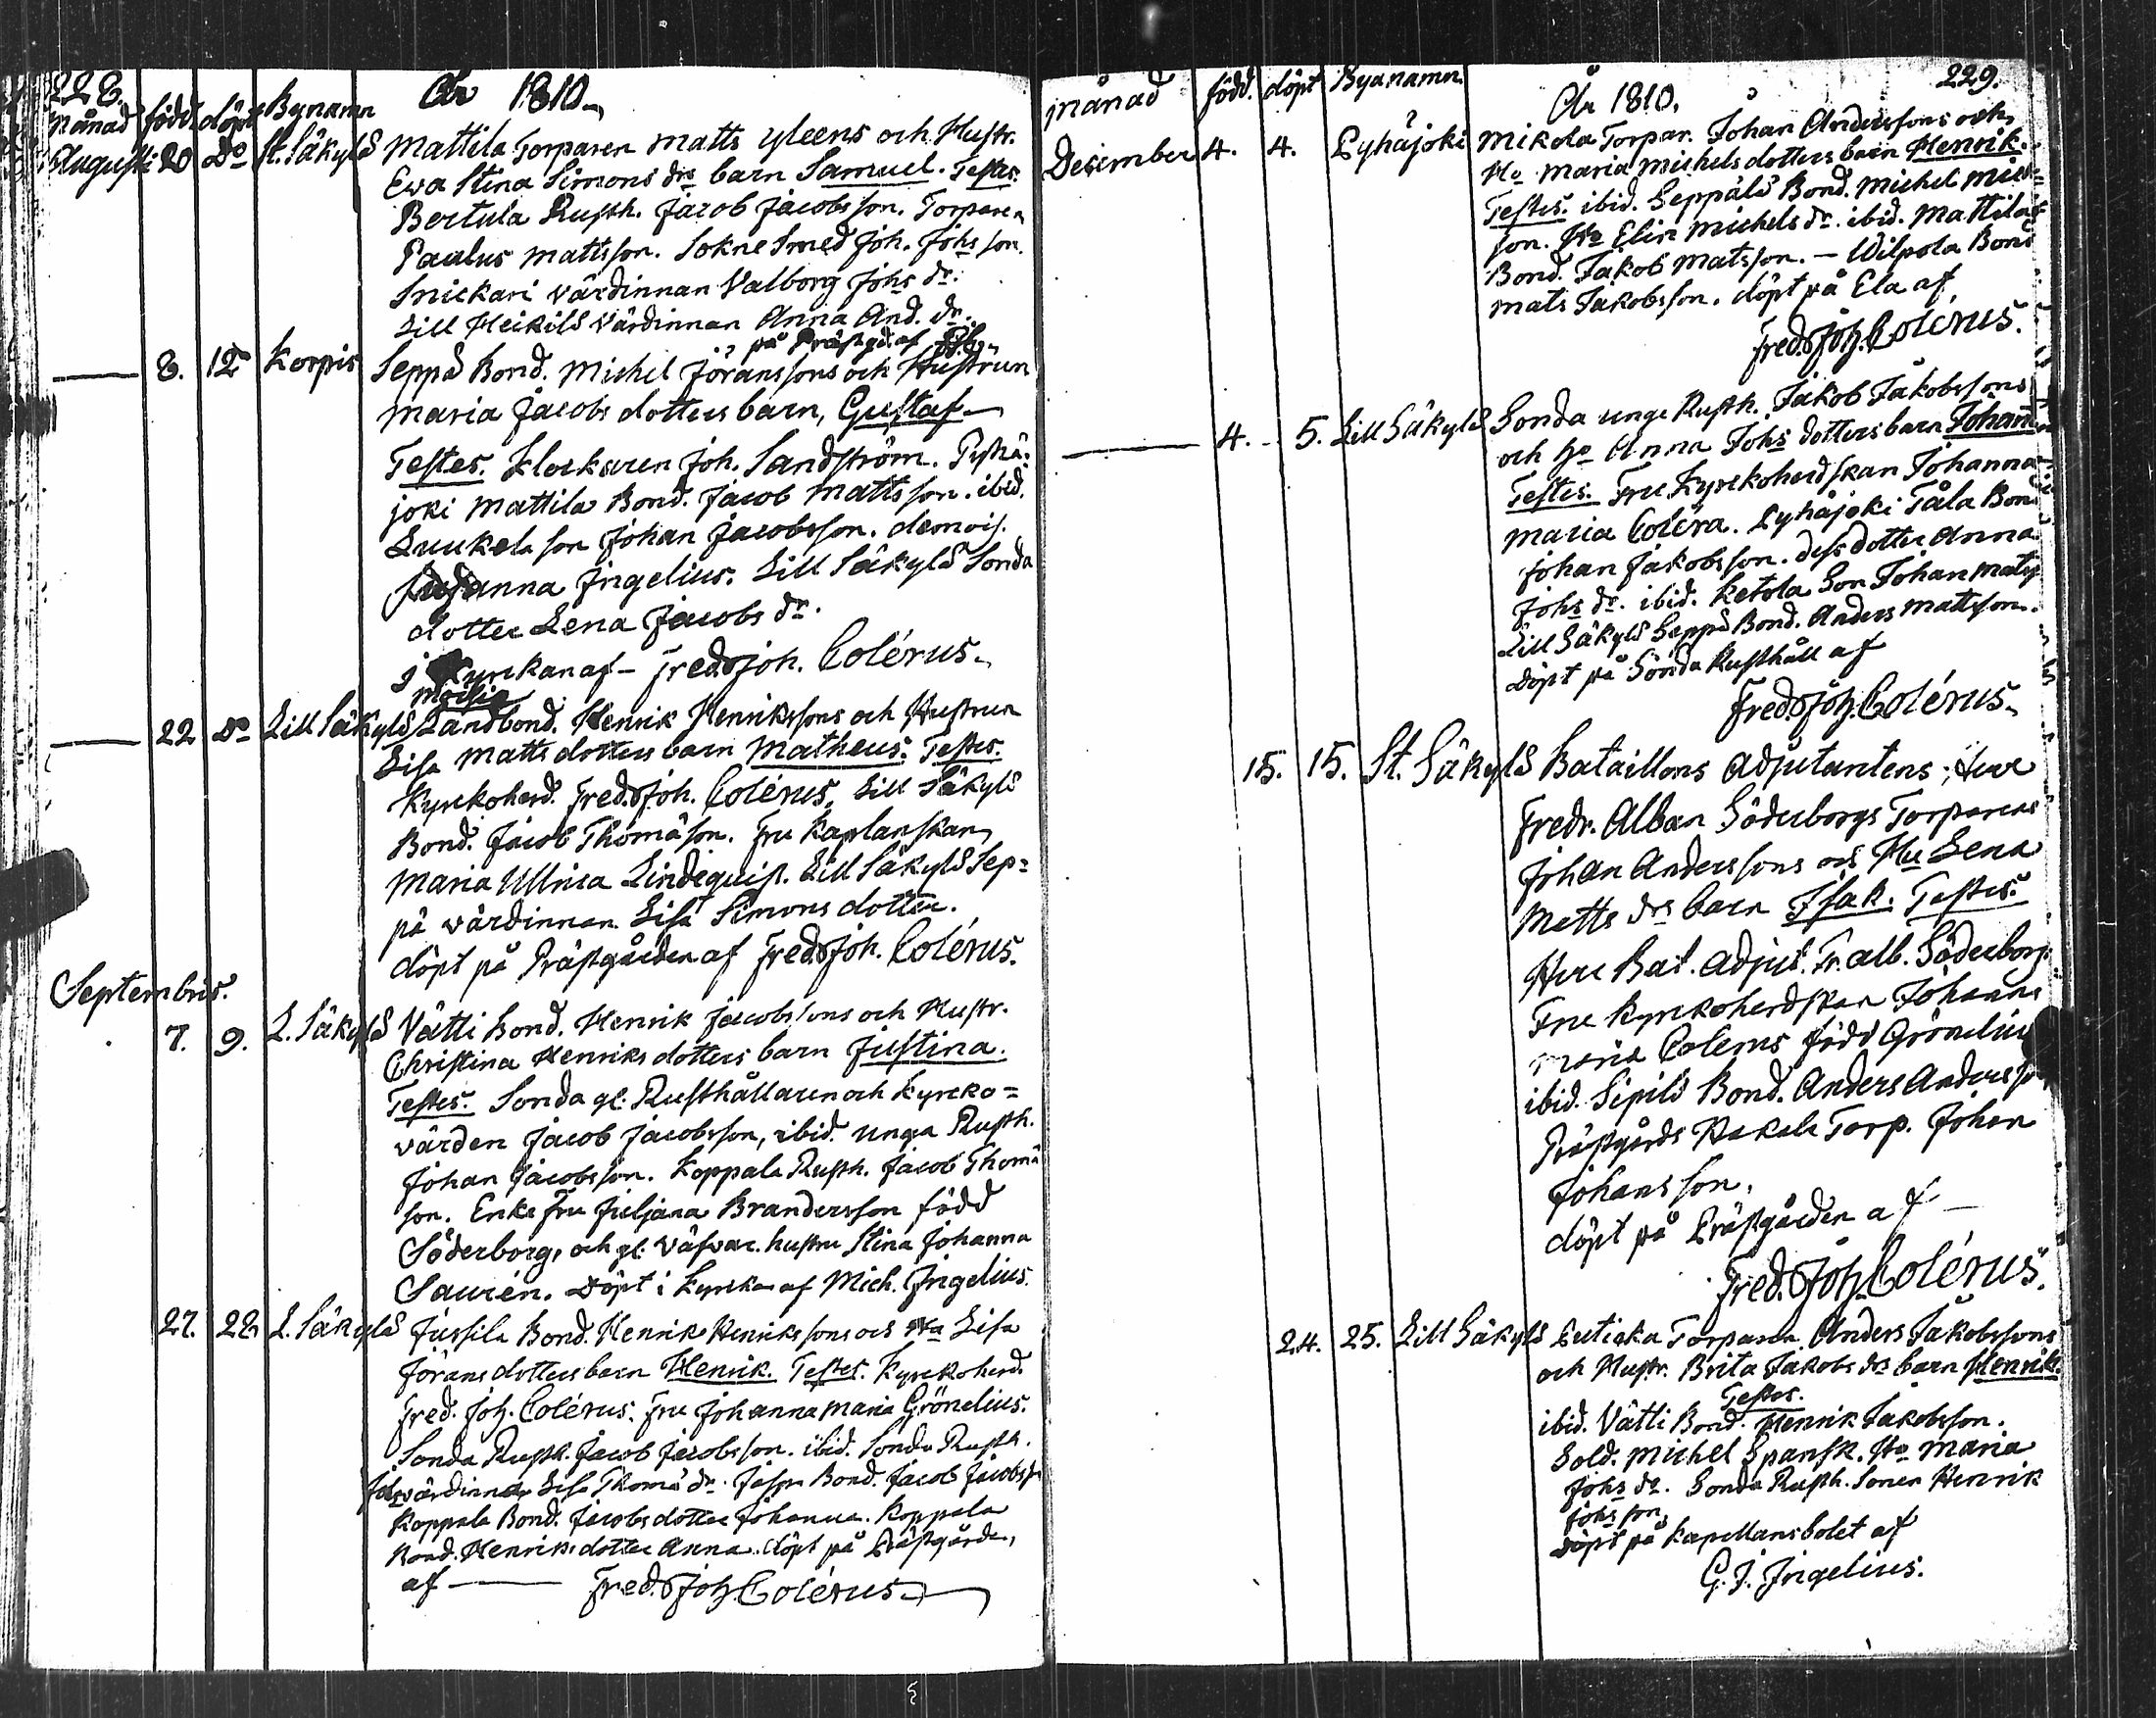 228.
Månad född döpt Bynamn År 1810.
Augusti 20 Do St. Säkylä Mattila Torparen Matts yleens och Hustr.
Ewa Stina Simons drs barn Samuel. Testes.
Bertula Rusth. Jacob Jacobsson. Torparen
Paulus Mattsson. Sokne Smed Joh. Johs son.
Snickari värdinnan Valborg Johs dr.
Lill Heikilä värdinnan Anna And. dr.
på Prästgd. af
8. 12 Korpis Seppä Bond. Michel Göranssons och Hustrun
Maria Jacobs dotters barn, Gustaf
Testes. Klockaren Joh. Sandström. Pyhä-
joki Mattila Bond. Jacob Mattsson. ibid.
Luukela son Johan Jacobsson. demois.
Susanna Ingelius. Lill Säkylä Sonda
dotter Lena Jacobs dr.
i Kyrckan af - Fred. Joh. Colérus.
22 Do Lill Säkylä Landbond. Henrik Henrikssons och Hustrun
Lisa Matts dotters barn Matheus. Testes.
Kyrckoherd. Fred. Joh. Colérus. Lill Säkylä
Bond. Jacob Thomäson. Fru Kaplanskan
Maria Ullrica Lindequist. Lill Säkylä Sep=
pä värdinnan Lisa Simons dotter.
döpt på Prästgården af Fred. Joh. Colérus.
Septembris.
7. 9. L. Säkylä Vätti Bond. Henrik Jacobssons och Hustr.
Christina Henriks dotters barn Justina.
Testes. Sonda gl. Rusthållaren och Kyrcko=
värden Jacob Jacobsson, ibid. unga Rusth.
Johan Jacobsson. Koppala Rusth. Jacob Thomä
son. Enke Fru Juljana Brandersson född
Söderborg, och gl. Väfvar. hustru Stina Johanna
Saurén. Döpt i Kyrckan af Mich. Ingelius.
27. 22. L. Säkylä Jussila Bond. Henrik Henrikssons och Ha Lisa
Görans dotters barn Henrik. Testes. Kyrckoherd.
Fred. Joh. Colérus. Fru Johanna Maria Grönelius.
Sonda Rusth. Jacob Jacobsson. ibid. Sonda Rusth.
värdinnan Lisa Thomä dr. Bond. Jacob Jacobsson
Koppala Bond. Jacobs dotter Johanna. Koppala
Bond. Henriks dotter Anna. döpt på Prästgården,
af — Fred. Joh. Colérus
229.
Månad född. döpt Byanamn. År 1810.
December 4. 4. Pyhäjoki Mikola Torpar. Johan Anderssons och
Ho Maria Michels dotters barn Henrik.
Testes. ibid. Seppälä Bond. Michel Mich=
son. Ho Elin Michels dr. ibid. Mattila
Bond. Jakob Matsson. - Wilpola Bond
Mats Jakobsson. döpt på Ela af
Fred. Joh. Colérus.
4. 5. Lill Säkylä Sonda unge Rusth. Jakob Jakobssons
och Ho Anna Johs dotters barn Johan
Testes. Fru Kyrckoherdskan Johanna
Maria Coléra. Pyhäjoki Tåla Bond
Johan Jakobsson. dess dotter Anna
Johs dr. ibid. Ketola Son Johan Mats
Lill Säkylä Seppä Bond. Anders Mattsson.
döpt på Sonda Rusthåll af
Fred. Joh. Colérus.
15. 15. St. Säkylä Bataillons Adjutantens Herr
Fredr. Alban Söderborgs Torparens
Johan Anderssons och Hu Lena
Matts drs barn Isak. Testes.
Herr Bat. Adjut. Fr. Alb. Söderborg
Fru Kyrckoherdskan Johanna
Maria Colerus född Grönelius
ibid. Sipilä Bond. Anders Andersson
Prästgårds Hakala Torp. Johan
Johansson.
döpt på Prästgården af
Fred. Joh. Colérus.
24. 25. Lill Säkylä Torparen Anders Jakobssons
och Hustr. Brita Jakobs drs barn Henrik.
Testes.
ibid. Vätti Bond. Henrik Jakobsson.
Sold. Michel Spansk. Ho Maria
Johs dr. Sonda Rusth. Sonen Henrik
Johs son,
döpt på Kapellansbolet af
G. J. Ingelius.